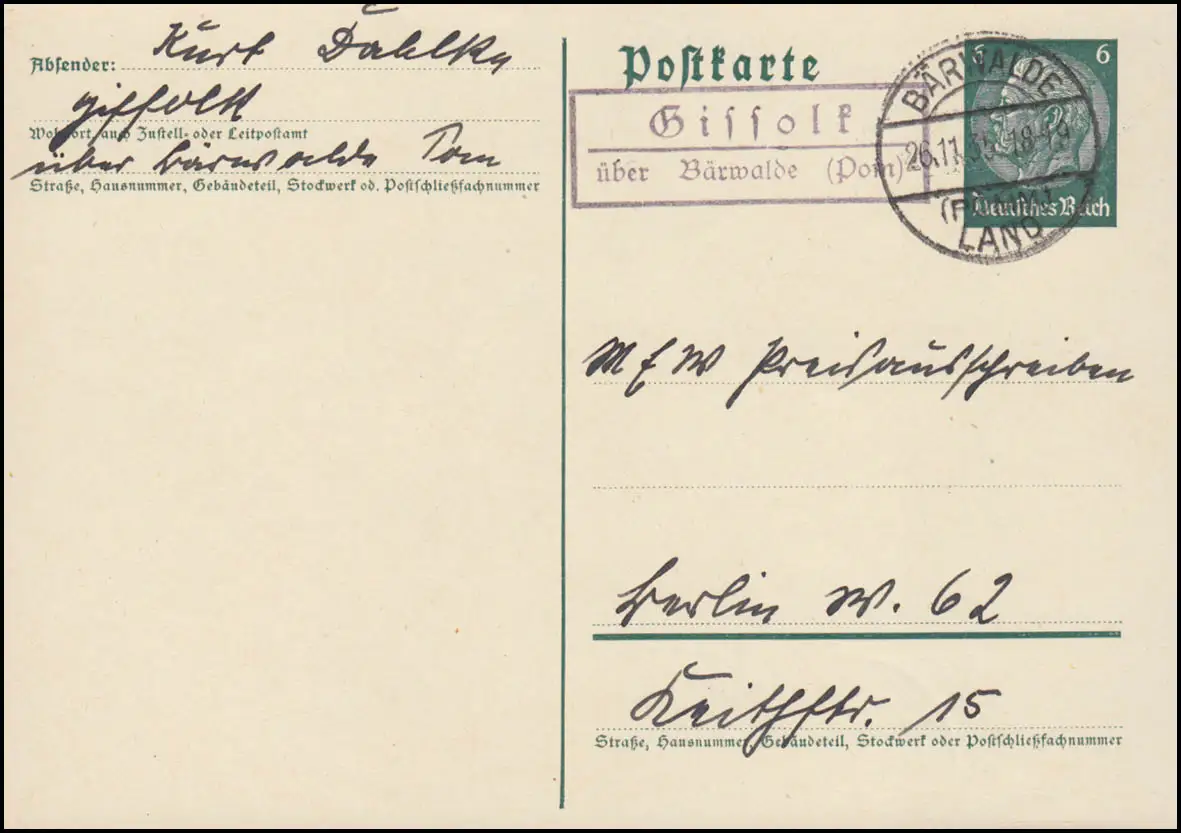 Absender: Kurt Dahlka
Gissolk
Wohnort, auch Zustell- oder Leitpostamt
über Bärwalde Pom
Straße, Hausnummer, Gebäudeteil, Stockwerk od. Postschließfachnummer
Postkarte
Gissolk
über Bärwalde (Pom)
6 6
Deutsches Reich
BÀRWALDE
26.11.35 18-19
(POMM)
LAND
M E W Preisausschreiben
Berlin W. 62
Keithstr. 15
Straße, Hausnummer, Gebäudeteil, Stockwerk oder Postschließfachnummer